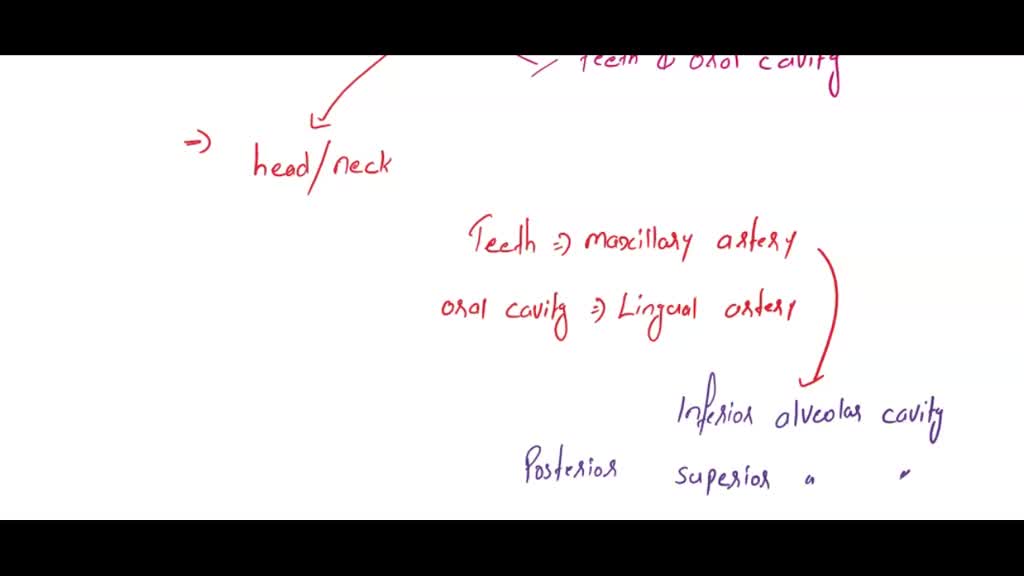 Teeth & oral cavity
=> head/neck
Teeth => maxillary artery
oral cavity => Lingual artery
Inferior alveolar cavity
Posterior superior " "